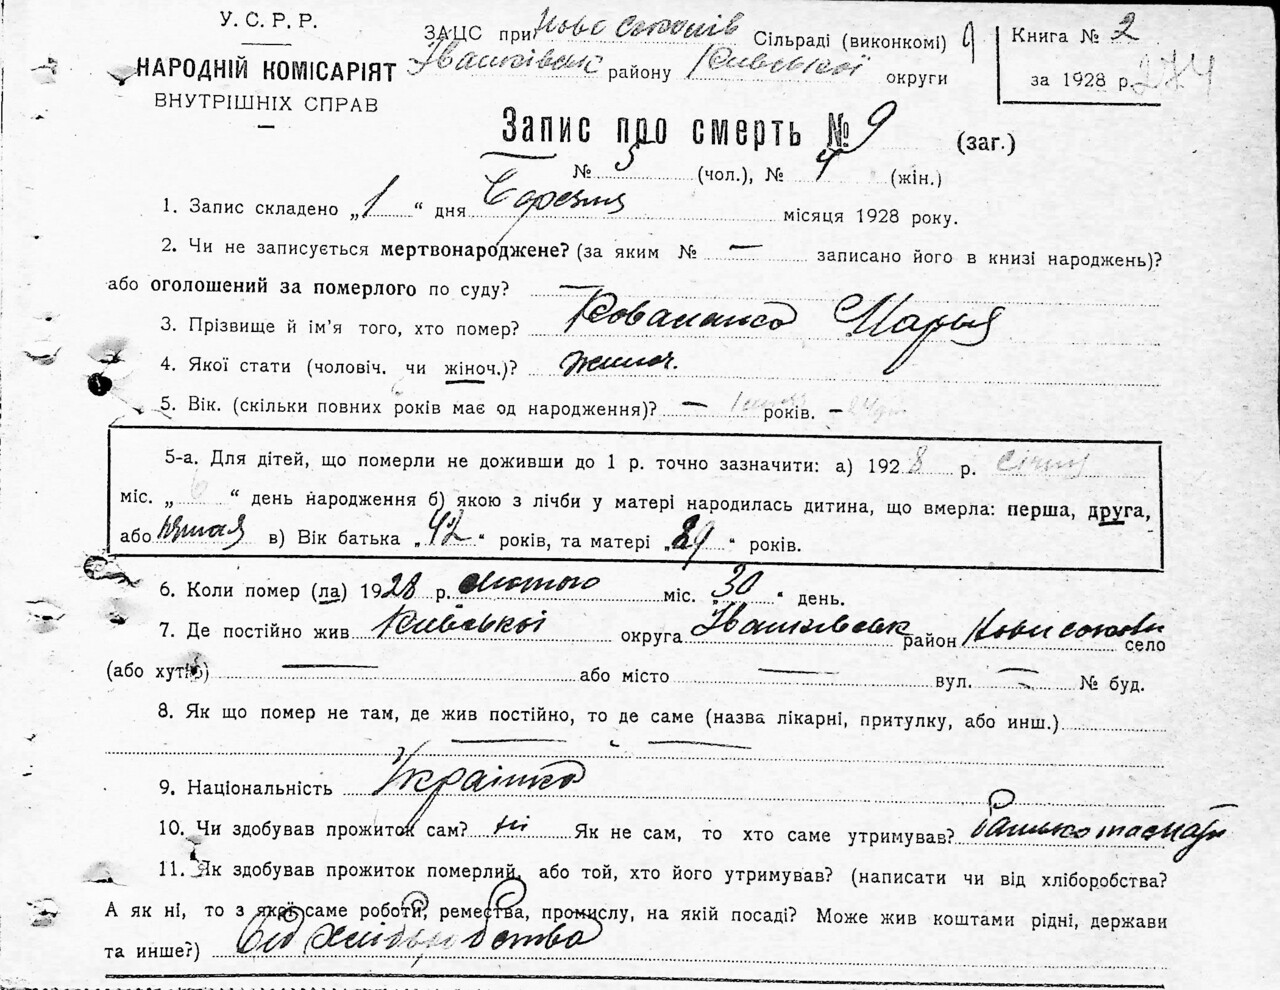 У. С. Р. Р.
НАРОДНІЙ КОМІСАРІЯТ
ВНУТРІШНІХ СПРАВ
ЗАЦС при Ново Сільраді (виконкомі)
Іванківськ району Київської округи
Книга № 2
за 1928 р. 274
Запис про смерть № 9 (заг.)
№ 5 (чол.), № 4 (жін.)
1. Запис складено „1“ дня Березня місяця 1928 року.
2. Чи не записується мертвонароджене? (за яким № — записано його в книзі народжень)?
або оголошений за померлого по суду? —
3. Прізвище й ім'я того, хто помер? Марья
4. Якої стати (чоловіч. чи жіноч.)? жіноч.
5. Вік. (скільки повних років має од народження)? — років. —
5-а. Для дітей, що померли не доживши до 1 р. точно зазначити: а) 1928 р. січня
міс. „6“ день народження б) якою з лічби у матері народилась дитина, що вмерла: перша, друга,
або в) Вік батька „42“ років, та матері „39“ років.
6. Коли помер (ла) 1928 р. лютого міс. „30“ день.
7. Де постійно жив Київської округа Іванківськ район село
(або хутір) — або місто — вул. — № буд.
8. Як що помер не там, де жив постійно, то де саме (назва лікарні, притулку, або инш.)
— —
9. Національність Українка
10. Чи здобував прожиток сам? ні Як не сам, то хто саме утримував? Батько та мати
11. Як здобував прожиток померлий, або той, хто його утримував? (написати чи від хліборобства?
А як ні, то з якої саме роботи, ремества, промислу, на якій посаді? Може жив коштами рідні, держави
та инше?) Від хліборобства